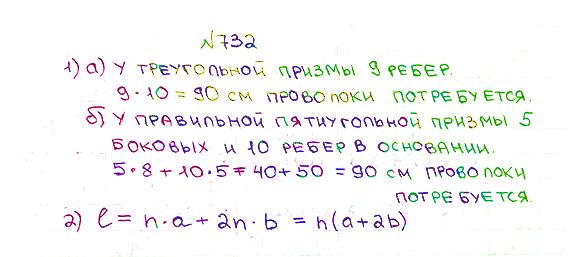 №732
1) а) У ТРЕУГОЛЬНОЙ ПРИЗМЫ 9 РЕБЕР.
9·10=90 СМ ПРОВОЛОКИ ПОТРЕБУЕТСЯ.
б) У ПРАВИЛЬНОЙ ПЯТИУГОЛЬНОЙ ПРИЗМЫ 5
БОКОВЫХ И 10 РЕБЕР В ОСНОВАНИИ.
5·8+10·5=40+50=90 СМ ПРОВОЛОКИ
ПОТРЕБУЕТСЯ.
2) ℓ=n·a+2n·b=n(a+2b)